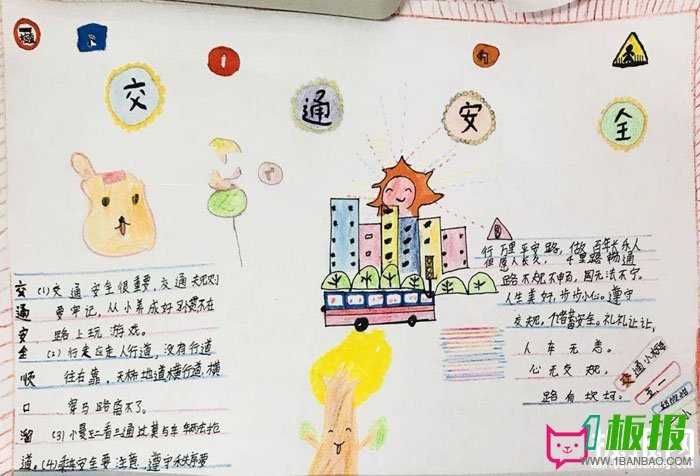 交
通
安
全
交 (1)交通安全很重要,交通规则
通 要牢记,从小养成好习惯不在
安 路上玩游戏。
全 (2)行走应走人行道,没有行道
顺 往右靠,天桥地道横行道,横
口 穿马路离不了。
溜 (3)一慢二看三通过,莫与车辆去抢
道,(4)乘车安全要注意,遵守秩序要
行万里平安路,做百年长乐人
但愿人长久,千里路畅通
路不规不中畅,国无法不宁。
人生美好,步步小心。遵守
交规,储蓄安全。礼礼让让,
人车无恙。
心无交规,
路有坎坷。
交通小报
五一
1板报
WWW.1BANBAO.COM